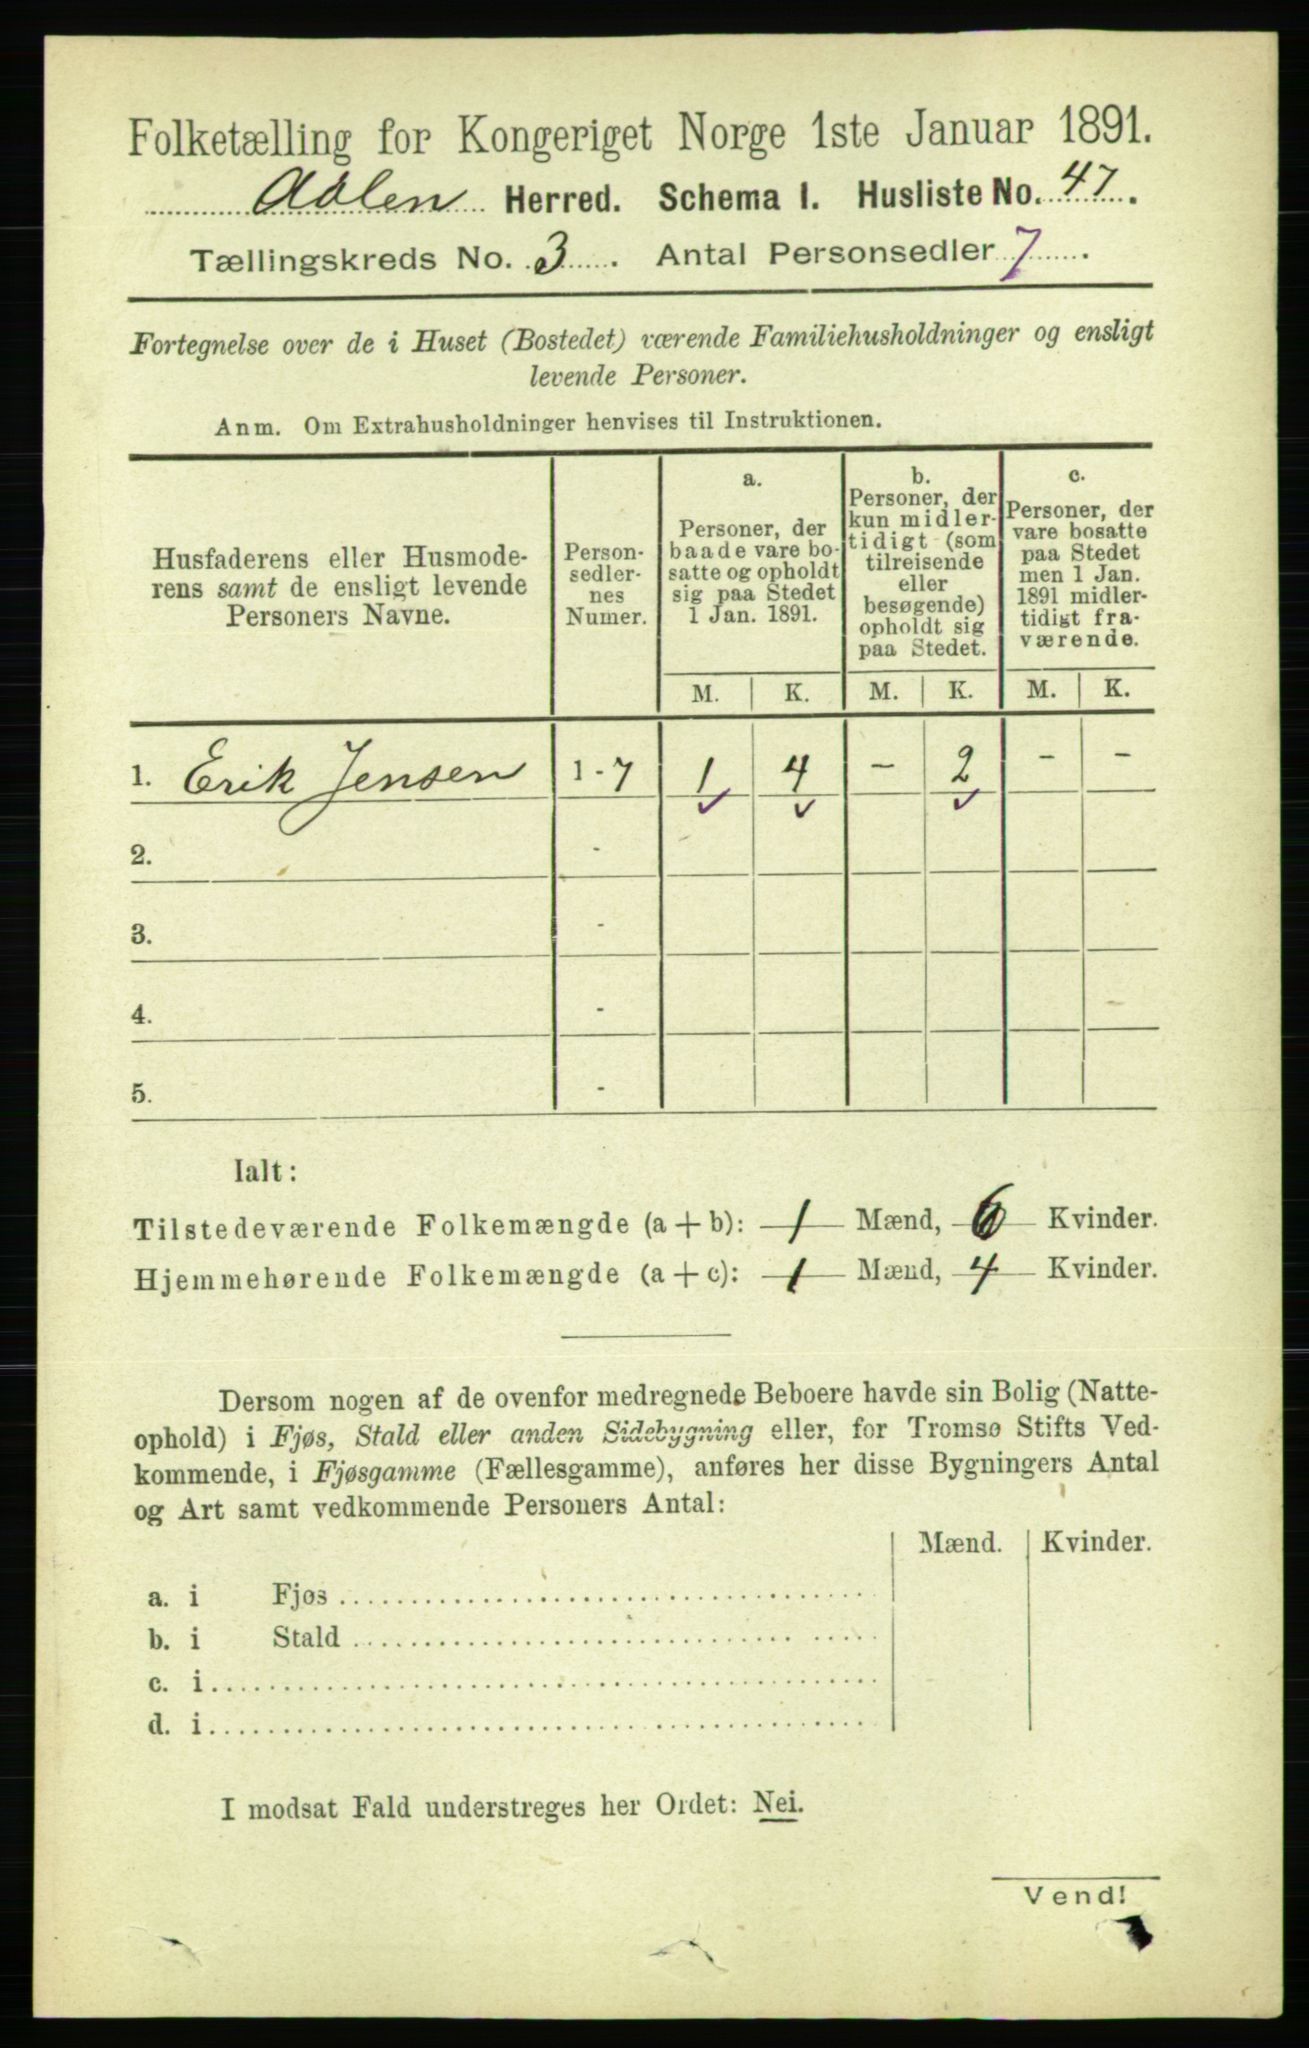 Folketælling for Kongeriget Norge 1ste Januar 1891.
Aalen Herred. Schema 1. Husliste No. 47.
Tællingskreds No. 3. Antal Personsedler 7.
Fortegnelse over de i Huset (Bostedet) værende Familiehusholdninger og ensligt
levende Personer.
Anm. Om Extrahusholdninger henvises til Instruktionen.
Husfaderens eller Husmode-
rens samt de ensligt levende
Personers Navne.
Person-
sedler-
nes
Numer.
a.
Personer, der
baade vare bo-
satte og opholdt
sig paa Stedet
1 Jan. 1891.
b.
Personer, der
kun midler-
tidigt (som
tilreisende
eller
besøgende)
opholdt sig
paa Stedet.
c.
Personer, der
vare bosatte
paa Stedet
men 1 Jan.
1891 midler-
tidigt fra-
værende.
M. K. M. K. M. K.
1. Erik Jensen 1-7 1 4 - 2 - -
2. -
3. -
4. -
5. -
Ialt:
Tilstedeværende Folkemængde (a + b): 1 Mænd, 6 Kvinder.
Hjemmehørende Folkemængde (a + c): 1 Mænd, 4 Kvinder.
Dersom nogen af de ovenfor medregnede Beboere havde sin Bolig (Natte-
ophold) i Fjøs, Stald eller anden Sidebygning eller, for Tromsø Stifts Ved-
kommende, i Fjøsgamme (Fællesgamme), anføres her disse Bygningers Antal
og Art samt vedkommende Personers Antal:
Mænd. Kvinder.
a. i Fjøs
b. i Stald
c. i
d. i
I modsat Fald understreges her Ordet: Nei.
Vend!